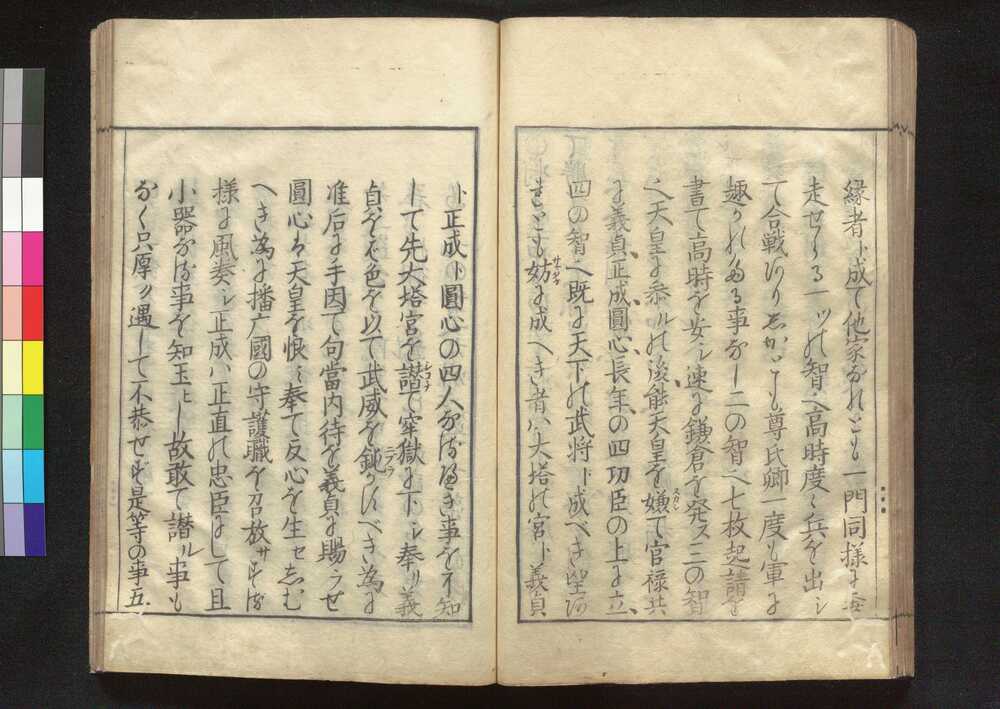 縁者ト成て他家なれとも一門同様に
走せらる一ツの智ハ高時度々兵を出シ
て合戦ありしかとも尊氏卿一度も軍に
趣かれたる事なし二の智ハ七枚起請を
書て高時を安シ速に鎌倉を発ス三の智
ハ天皇に参ルの後能天皇を嫌て官禄共
に義貞正成圓心長年の四功臣の上に立
四の智ハ既に天下の武将ト成へき望有
きとも妨に成へき者ハ大塔の宮ト義貞
ト正成ト圓心の四人なるへき事を不知
して先大塔宮を讃て牢獄に下シ奉リ義
貞をハ色を以て武威を鈍かすへき為に
准后に手因て勾當内侍を義貞に賜ラせ
圓心ハ天皇を恨ミ奉て反心を生セしむ
へき為に播广國の守護職を召放サせ
様に風奏シ正成ハ正直の忠臣にして且
小器なる事を知玉ヒし故敢て讃ル事も
なく只厚ク遇して不恭せす是等の事五